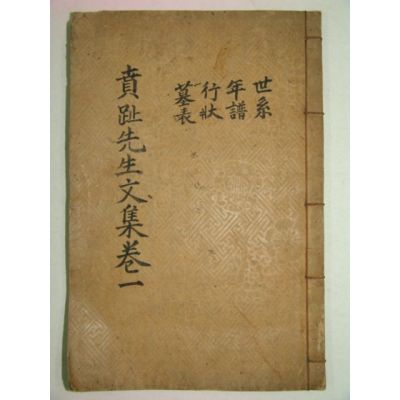 賁趾先生文集卷一
世系
年譜
行狀
墓表